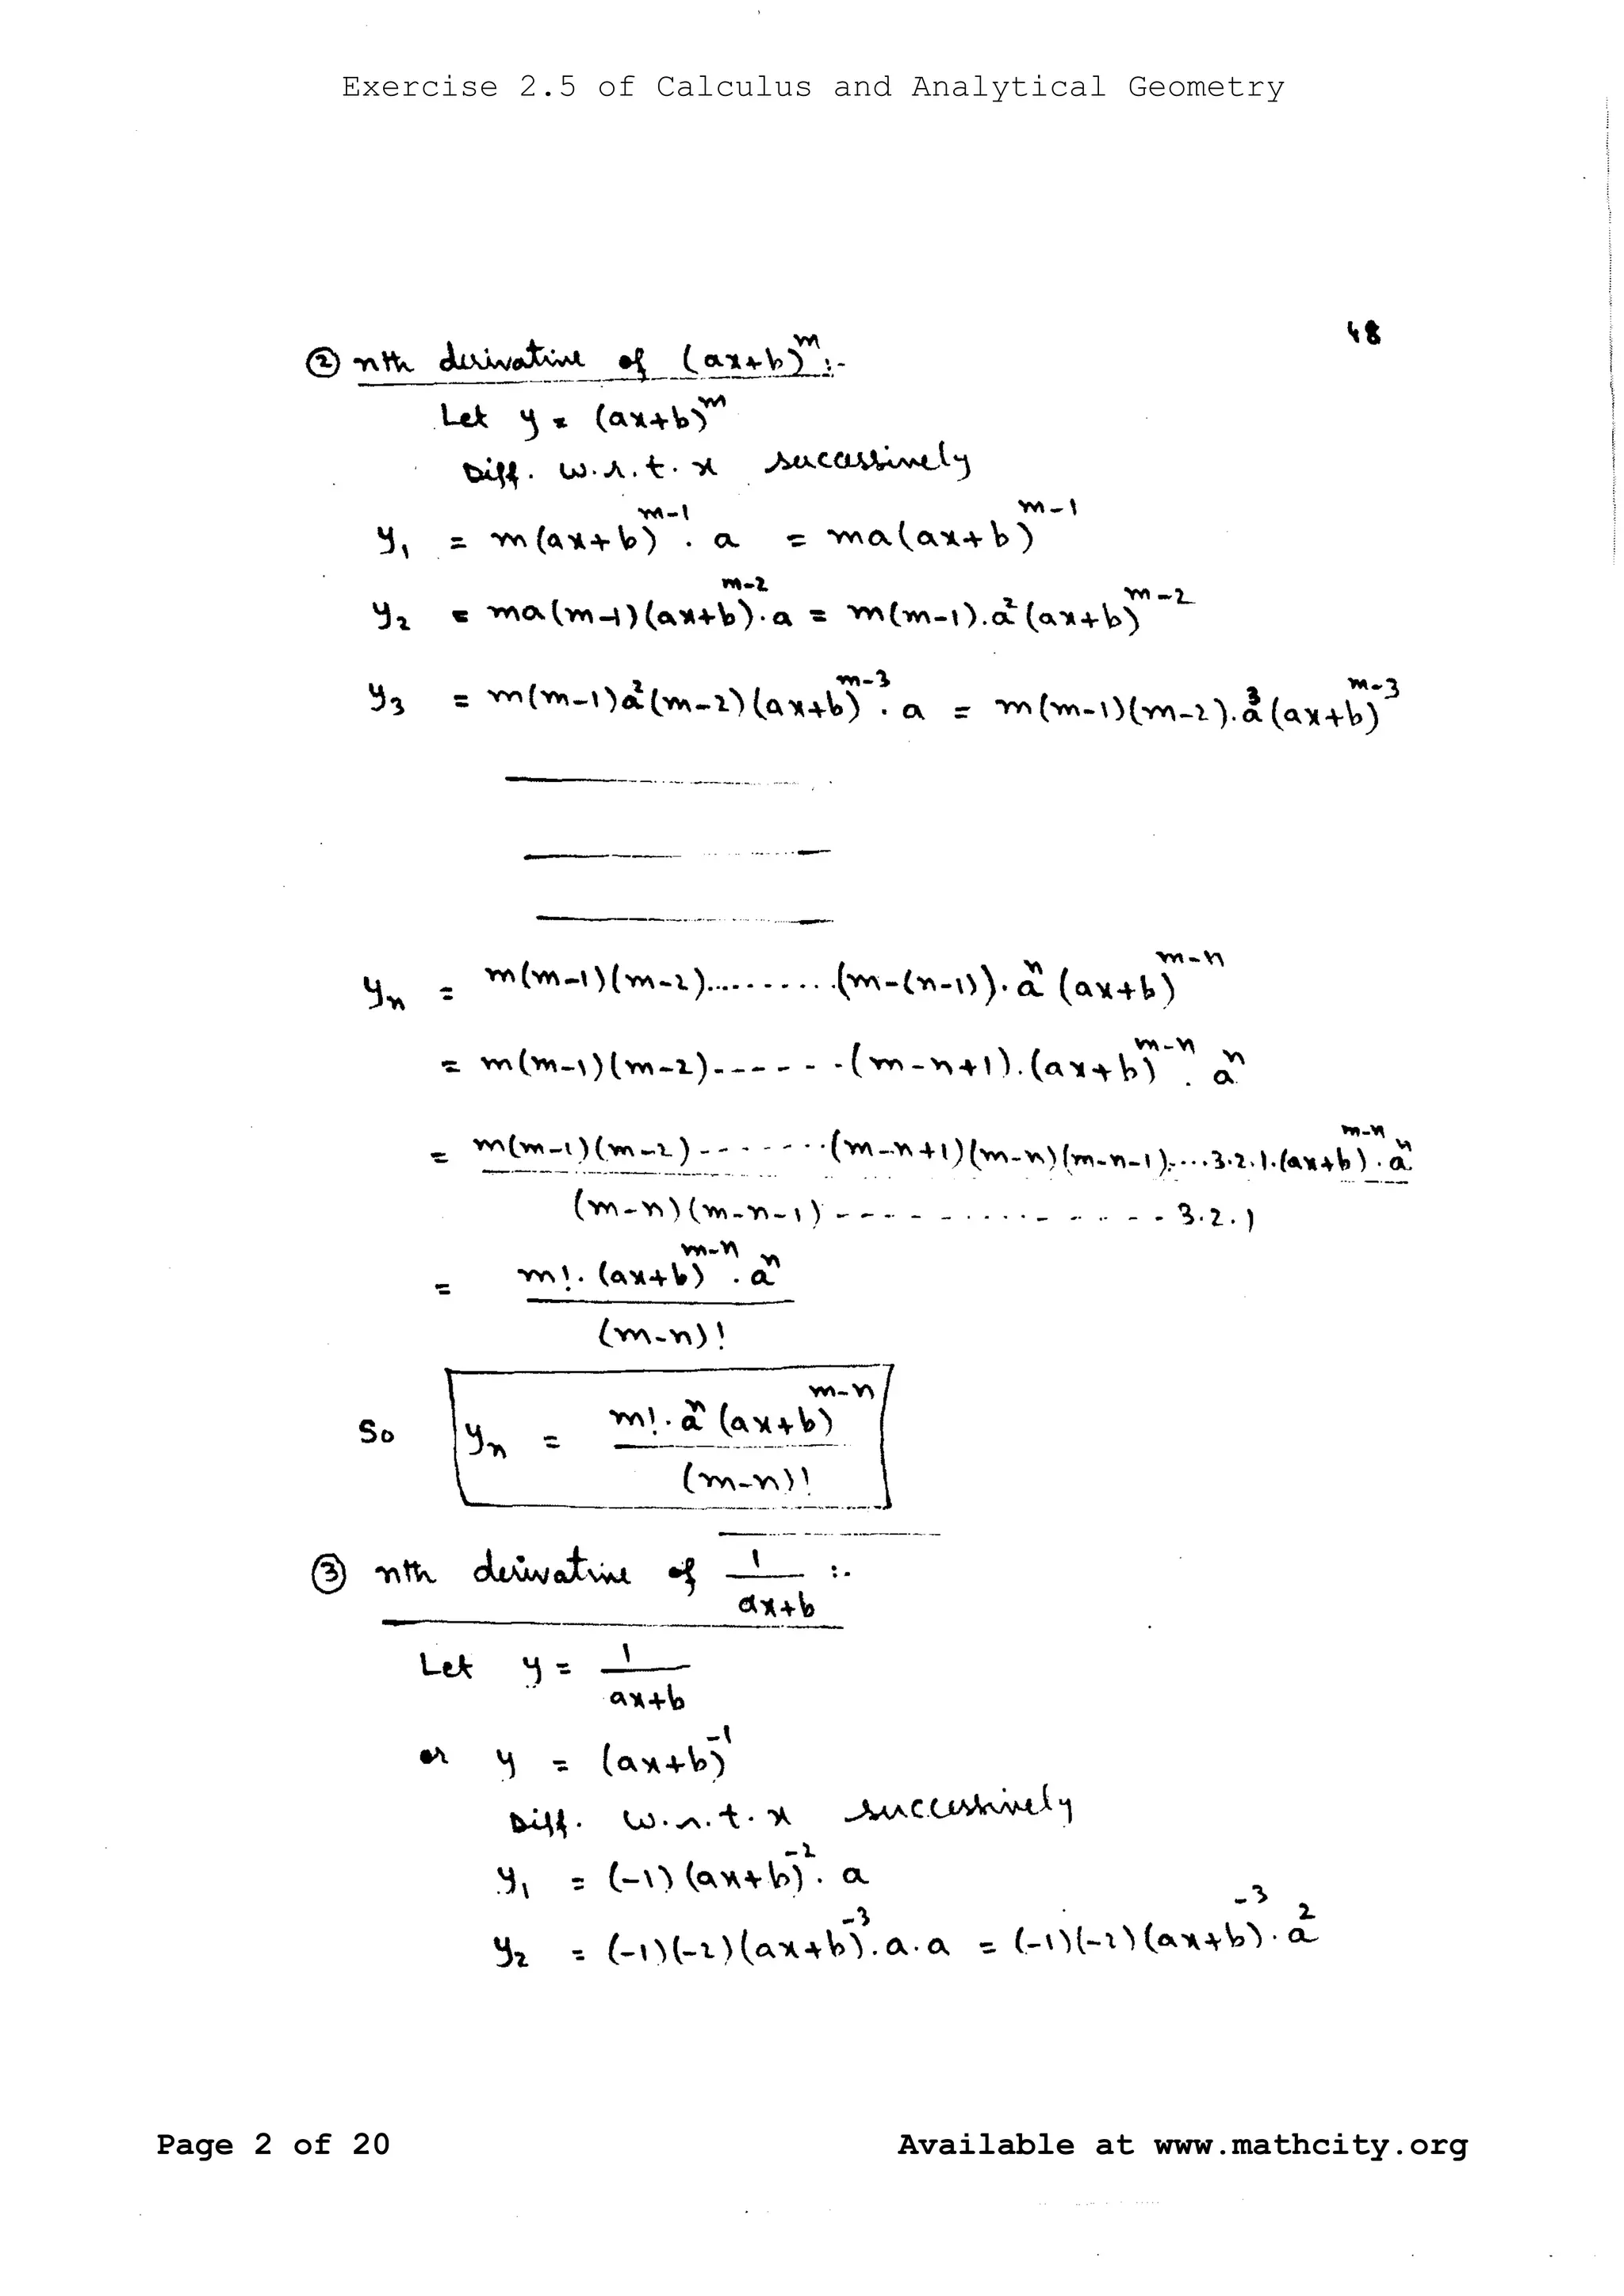 Exercise 2.5 of Calculus and Analytical Geometry
48
② nth derivative of (ax+b)^m :-
Let y = (ax+b)^m
Diff. w.r.t. x successively
y₁ = m(ax+b)^(m-1) . a = ma(ax+b)^(m-1)
y₂ = ma(m-1)(ax+b)^(m-2) . a = m(m-1).a²(ax+b)^(m-2)
y₃ = m(m-1)a²(m-2)(ax+b)^(m-3) . a = m(m-1)(m-2).a³(ax+b)^(m-3)
yₙ = m(m-1)(m-2)..........(m-(n-1)).aⁿ(ax+b)^(m-n)
= m(m-1)(m-2)-------(m-n+1).(ax+b)^(m-n) . aⁿ
= m(m-1)(m-2)--------(m-n+1)(m-n)(m-n-1)....3.2.1.(ax+b)^(m-n) . aⁿ
(m-n)(m-n-1)---------------3.2.1
= m!.(ax+b)^(m-n) . aⁿ
(m-n)!
So yₙ = m!.aⁿ(ax+b)^(m-n)
(m-n)!
③ nth derivative of 1 :-
ax+b
Let y = 1
ax+b
or y = (ax+b)^-1
Diff. w.r.t. x successively
y₁ = (-1)(ax+b)^-2 . a
y₂ = (-1)(-2)(ax+b)^-3 . a.a = (-1)(-2)(ax+b)^-3 . a²
Page 2 of 20
Available at www.mathcity.org